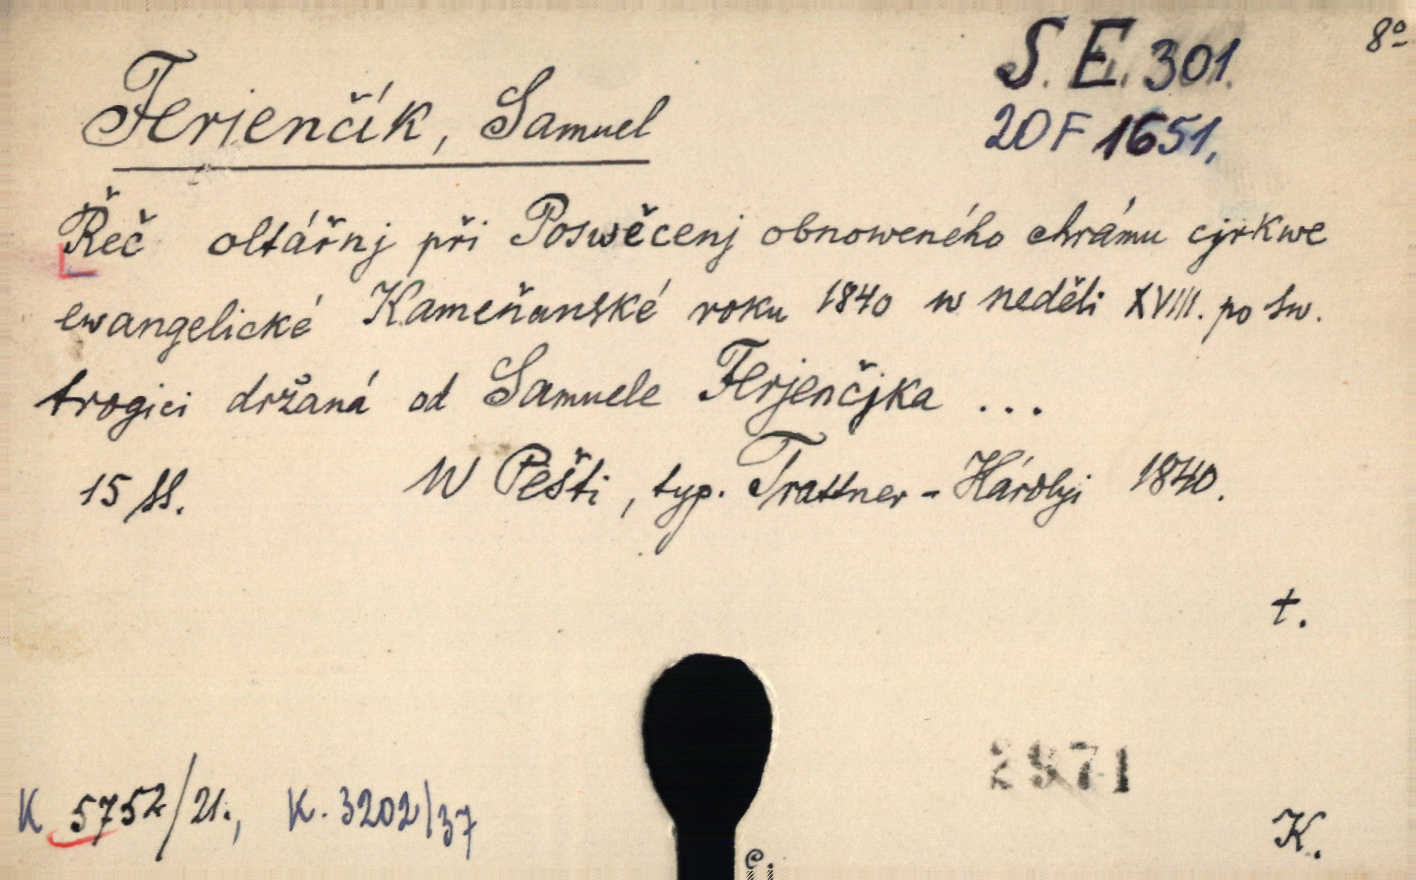 8º
S. E. 301.
20F 1651,
Ferienčík, Samuel
Řeč oltářnj při Poswěcenj obnoweného chrámu cjrkwe
ewangelické Kameňanské roku 1840 w neděli XVIII. po Sw.
trogici držaná od Samuele Ferjenčjka ...
15 ss. W Pešti, typ. Trattner-Károlyi 1840.
t.
2971
K 5752/21., K. 3202/37
K.